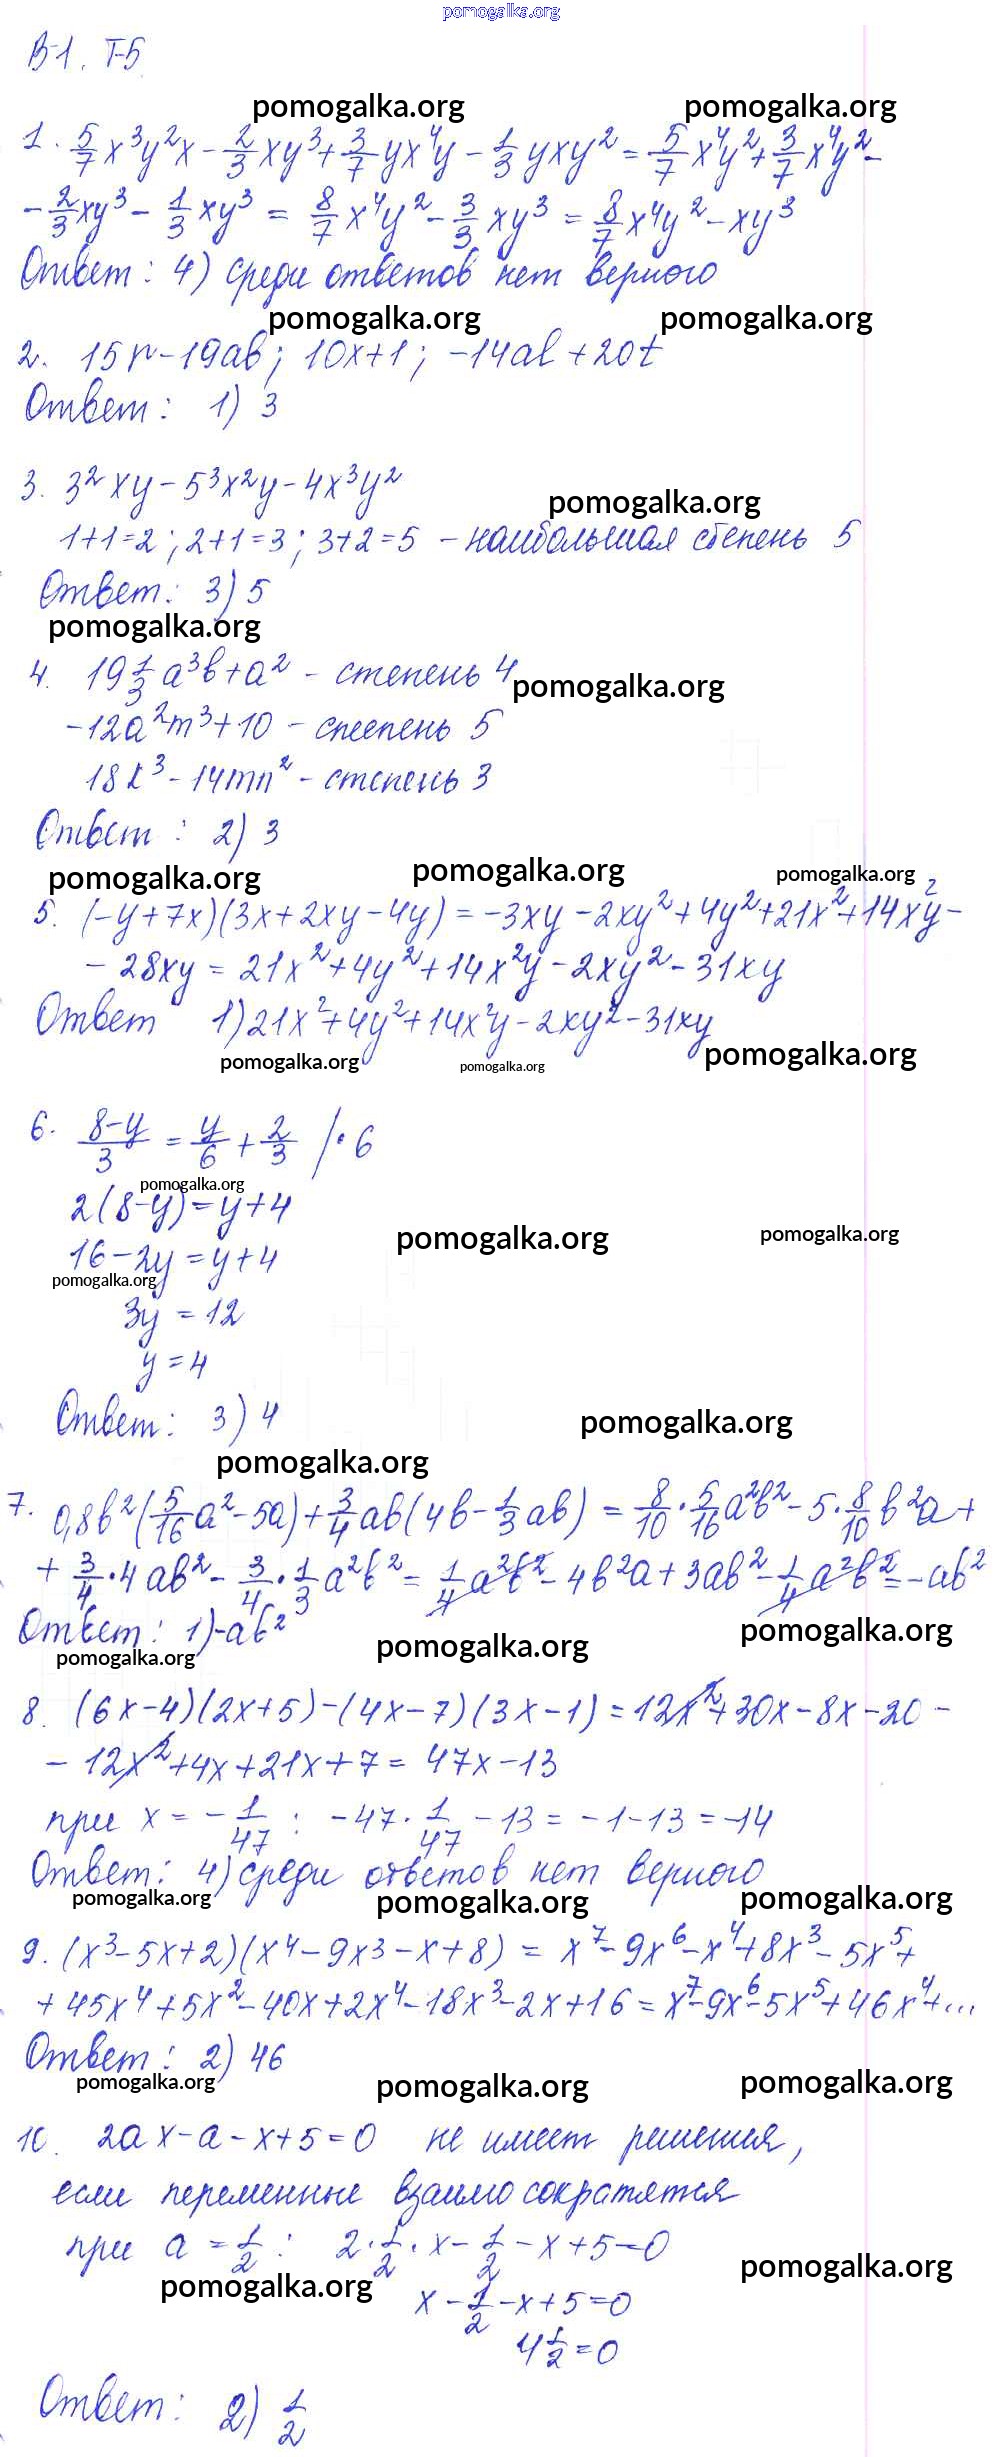 pomogalka.org
В-1. Т-5
pomogalka.org pomogalka.org
1. 5/7 x³y²x - 2/3 xy³ + 3/7 yx⁴y - 1/3 yxy² = 5/7 x⁴y² + 3/7 x⁴y² -
- 2/3 xy³ - 1/3 xy³ = 8/7 x⁴y² - 3/3 xy³ = 8/7 x⁴y² - xy³
Ответ: 4) среди ответов нет верного
pomogalka.org pomogalka.org
2. 15n - 19ab; 10x+1; -14ab + 20t
Ответ: 1) 3
3. 3² xy - 5³x²y - 4x³y²
pomogalka.org
1+1=2; 2+1=3; 3+2=5 - наибольшая степень 5
Ответ: 3) 5
pomogalka.org
4. 19 1/3 a³b + a² - степень 4
pomogalka.org
-12a²m³+10 - степень 5
18k³ - 14mn² - степень 3
Ответ: 2) 3
pomogalka.org pomogalka.org pomogalka.org
5. (-y+7x)(3x+2xy-4y) = -3xy - 2xy² + 4y² + 21x² + 14x²y -
- 28xy = 21x² + 4y² + 14x²y - 2xy² - 31xy
Ответ 1) 21x²+4y²+14x²y-2xy²-31xy
pomogalka.org pomogalka.org pomogalka.org
6. (8-y)/3 = y/6 + 2/3 /·6
pomogalka.org
2(8-y)=y+4
pomogalka.org pomogalka.org
16-2y=y+4
pomogalka.org
3y = 12
y = 4
Ответ: 3) 4
pomogalka.org
pomogalka.org
7. 0,8b²(5/16 a² - 5a) + 3/4 ab(4b - 1/3 ab) = 8/10 · 5/16 a²b² - 5 · 8/10 b²a +
+ 3/4 · 4ab² - 3/4 · 1/3 a²b² = 1/4 a²b² - 4b²a + 3ab² - 1/4 a²b² = -ab²
Ответ: 1) -ab²
pomogalka.org pomogalka.org pomogalka.org
8. (6x-4)(2x+5)-(4x-7)(3x-1) = 12x²+30x-8x-20-
- 12x²+4x+21x+7 = 47x-13
при x = -1/47 : -47 · 1/47 - 13 = -1-13 = -14
Ответ: 4) среди ответов нет верного
pomogalka.org pomogalka.org pomogalka.org
9. (x³-5x+2)(x⁴-9x3-x+8) = x⁷-9x⁶-x⁴+8x³-5x⁵+
+45x⁴+5x²-40x+2x⁴-18x³-2x+16 = x⁷-9x⁶-5x⁵+46x⁴+...
Ответ: 2) 46
pomogalka.org pomogalka.org pomogalka.org
10. 2ax-a-x+5=0 не имеет решения,
если переменные взаимо сократятся
при a = 1/2 : 2 · 1/2 · x - 1/2 - x + 5 = 0
pomogalka.org pomogalka.org
x - 1/2 - x + 5 = 0
4 1/2 = 0
Ответ: 2) 1/2